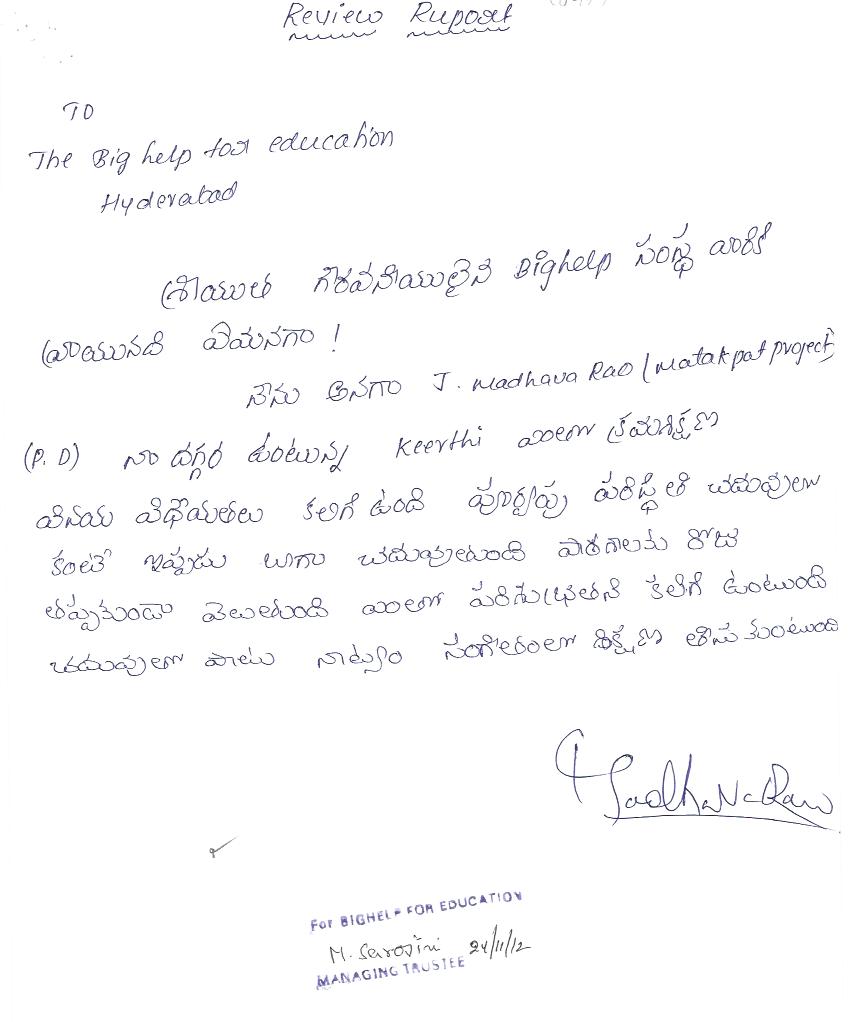 Review Ruport
TO
The Big help for education
Hyderabad
శ్రీయుత గౌరవనీయులైన Bighelp సంస్థ వారికి
వ్రాయునది ఏమనగా !
నేను అనగా J. Madhava Rao (Matakpat project)
(P. D) నా దగ్గర ఉంటున్న Keerthi ఎంతో క్రమశిక్షణ
వినయ విధేయతలు కలిగి ఉంది పూర్వపు పరిస్థితి చదువులు
కంటే ఇప్పుడు బాగా చదువుతుంది పాఠశాలకు రోజు
తప్పకుండా వెలుతుంది ఎంతో పరిశుభ్రతని కలిగి ఉంటుంది
చదువుతో పాటు నాట్యం సంగీతంలో శిక్షణ తీసుకుంటుంది
For BIGHELP FOR EDUCATION
M. Sarojini 24/11/12
MANAGING TRUSTEE